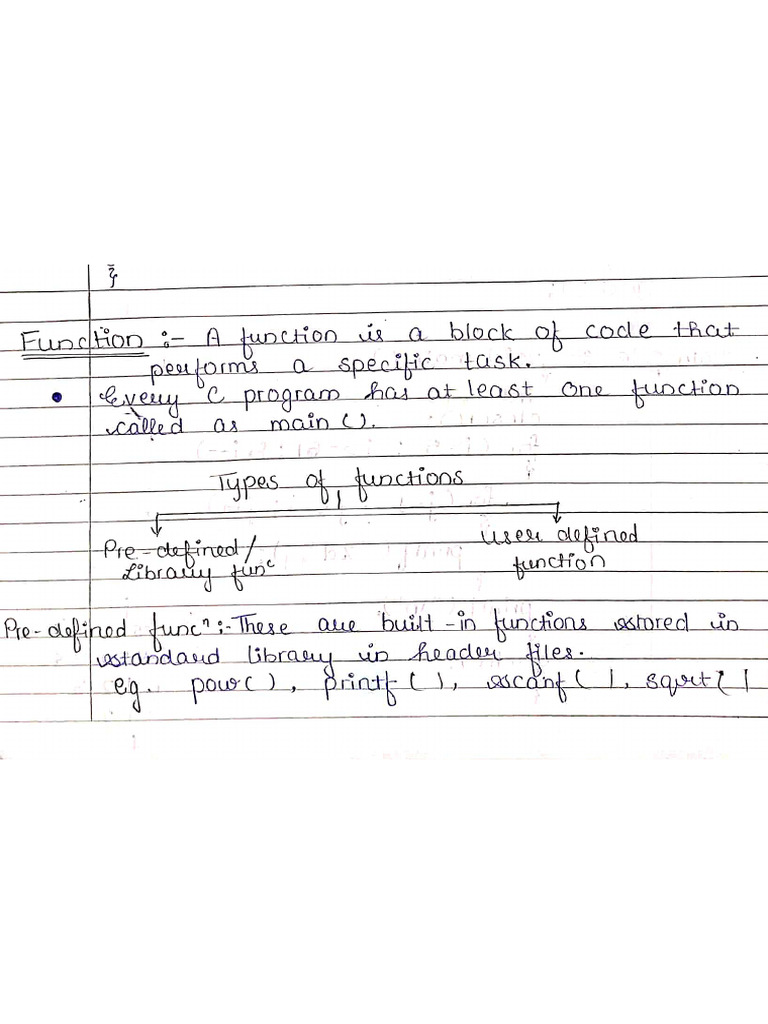 }
Function :- A function is a block of code that
performs a specific task.
• Every C program has at least one function
called as main().
Types of functions
Pre-defined/ User defined
Library funᶜ function
Pre-defined funcⁿ :- These are built-in functions stored in
standard library in header files.
eg. pow(), printf(), scanf(), sqrt()